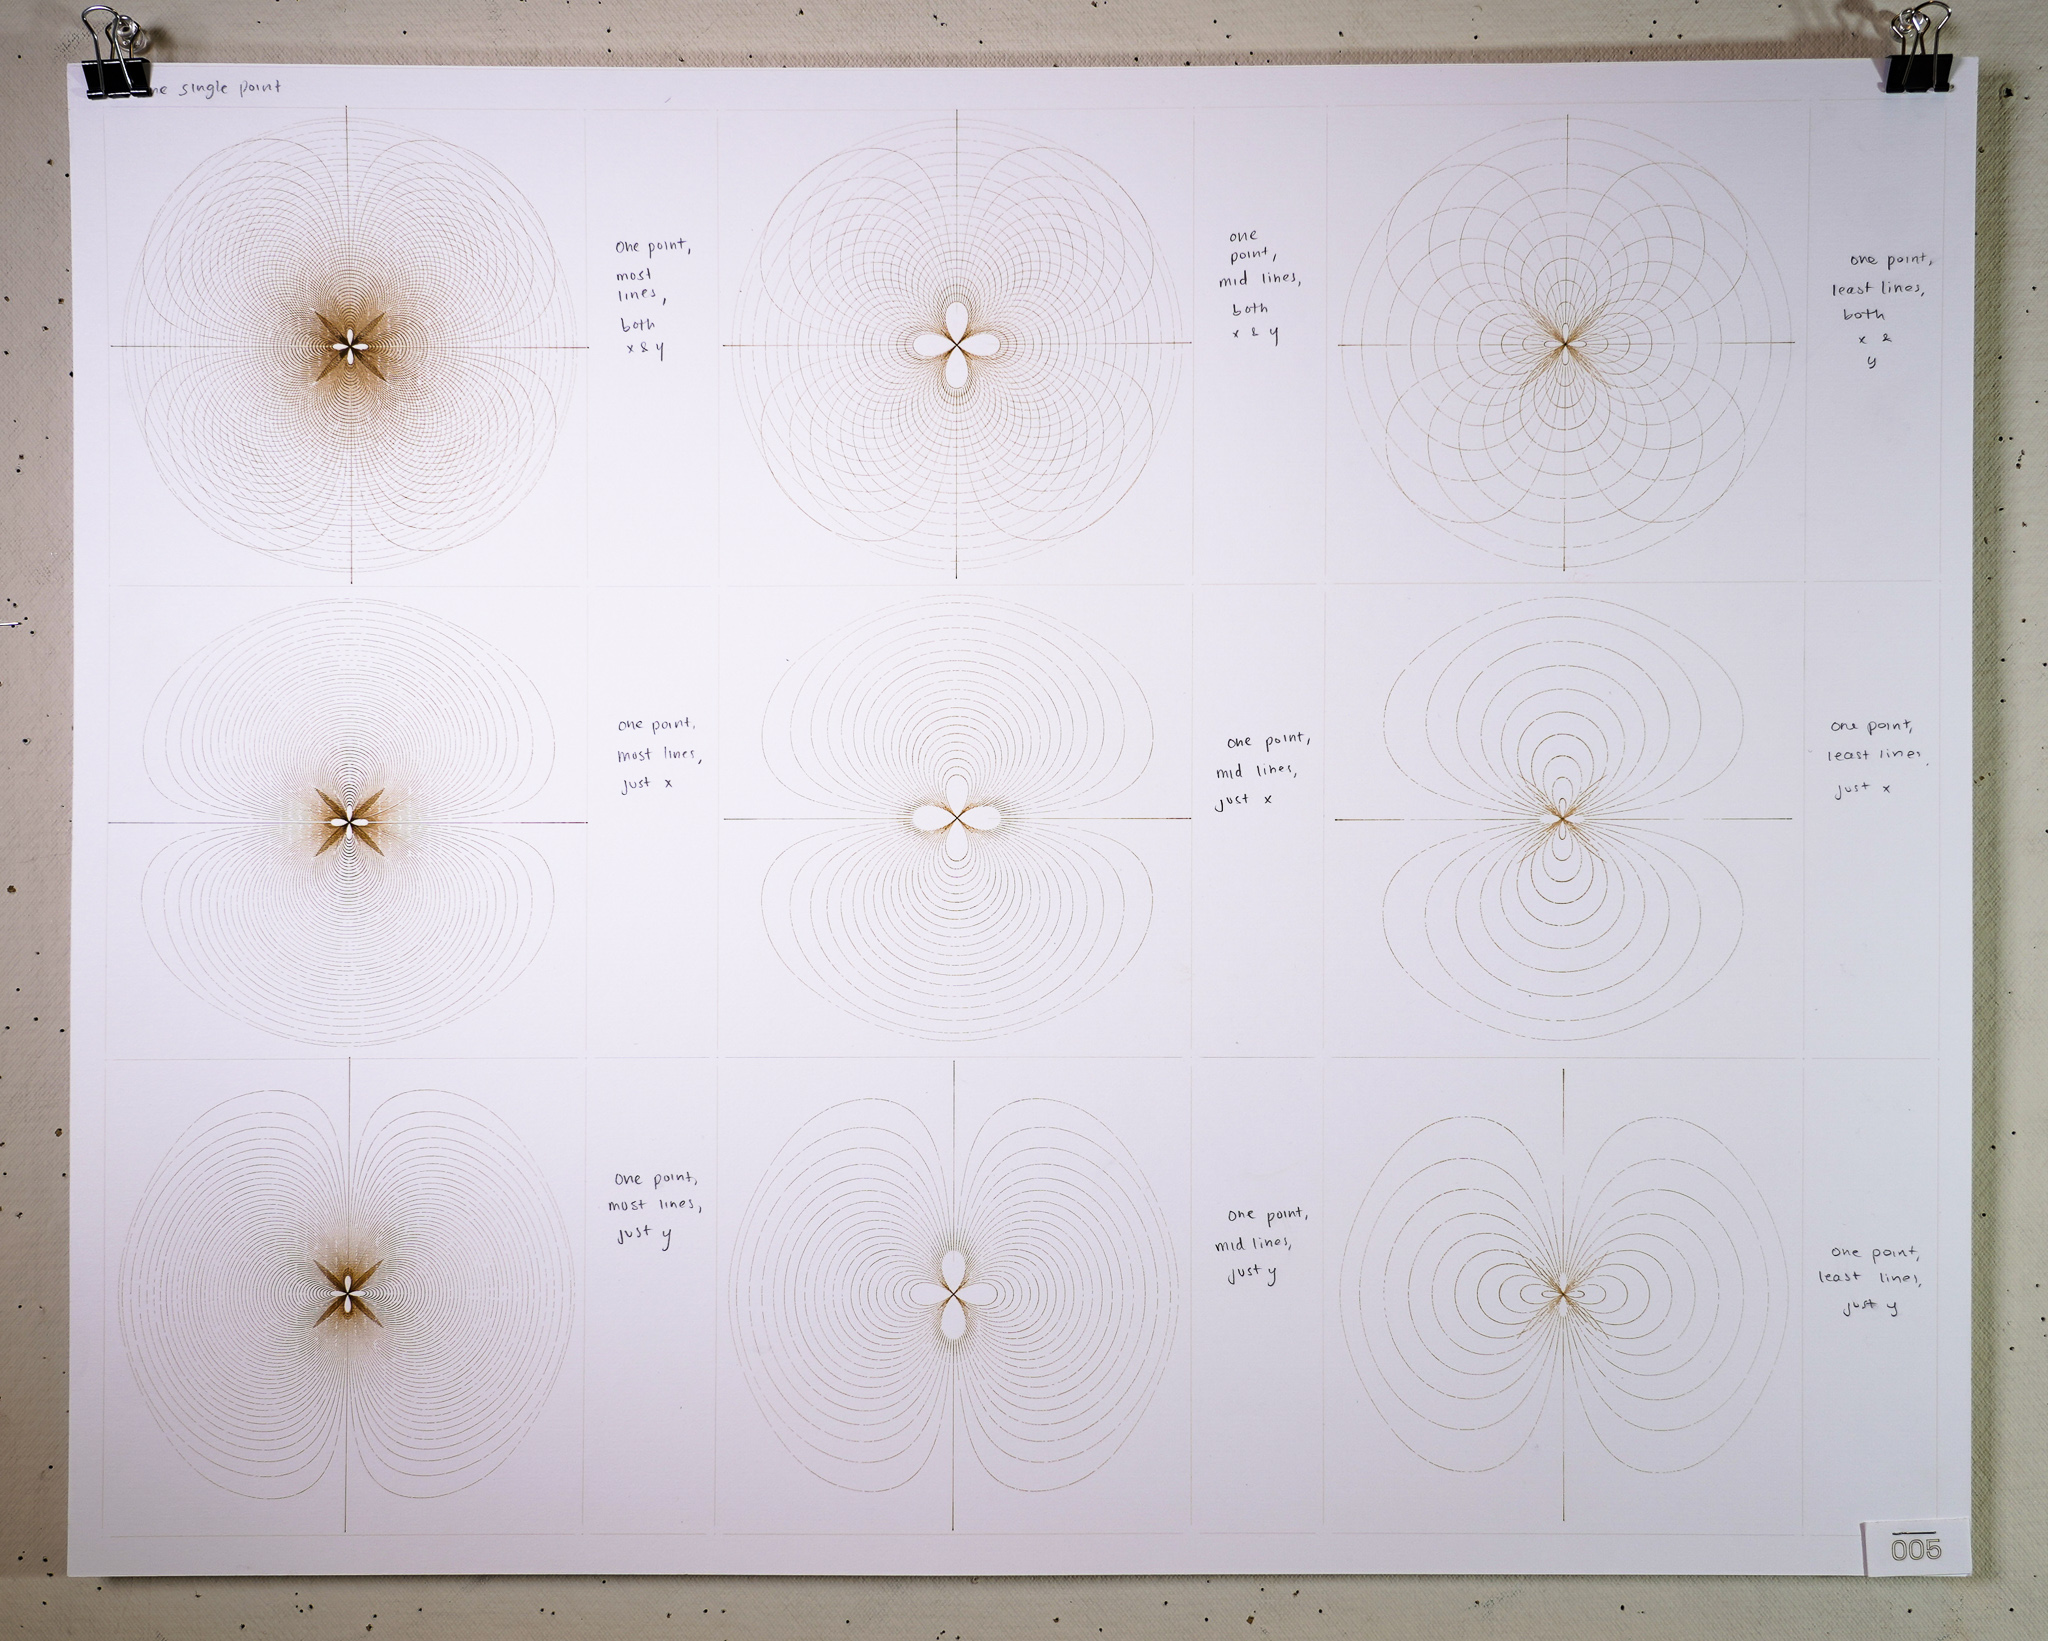 single point
One point,
most
lines,
both
x & y
one
point,
mid lines,
both
x & y
one point,
least lines,
both
x &
y
one point,
most lines,
just x
one point,
mid lines,
just x
one point,
least lines,
just x
One point,
most lines,
just y
One point,
mid lines,
just y
One point,
least lines,
just y
005